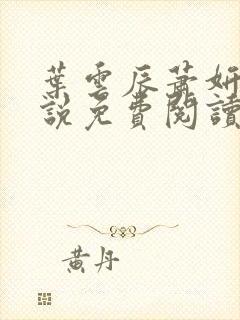 葉雲辰蕭妍
說免費閱讀
黃丹